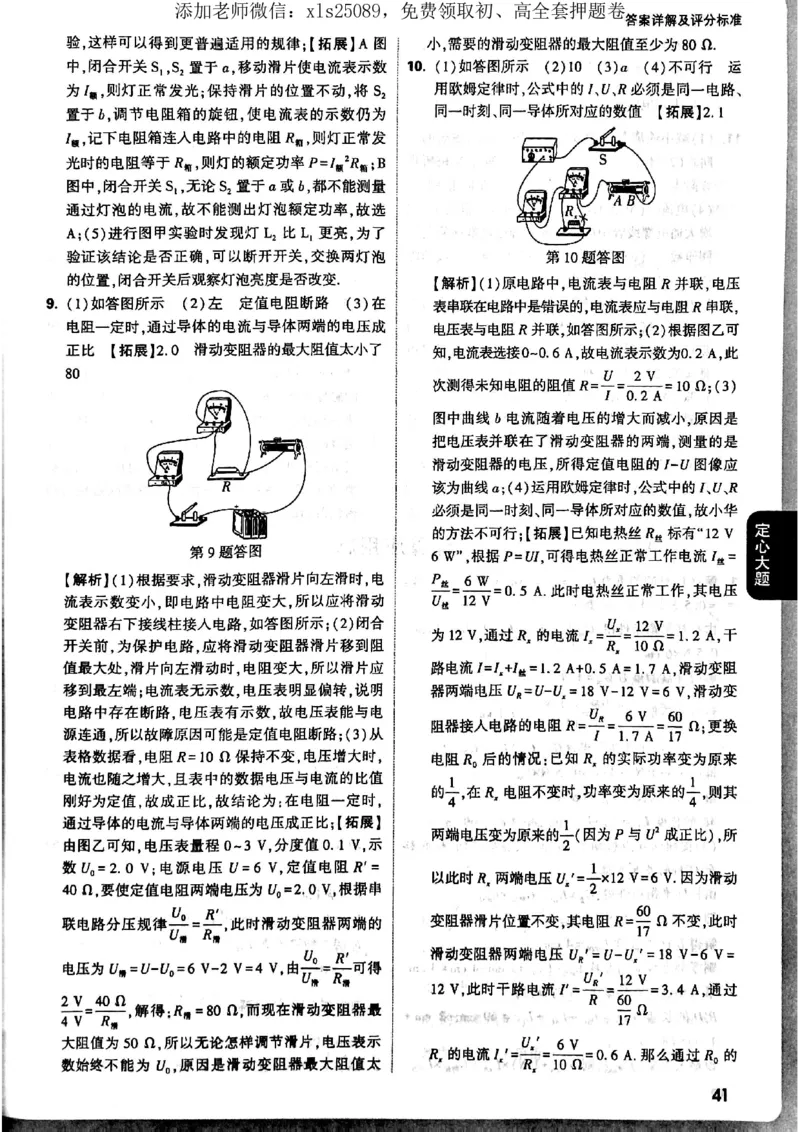 添加老师微信：xls25089，免费领取初、高全套押题卷
答案详解及评分标准
验,这样可以得到更普遍适用的规律;【拓展】A 图
中,闭合开关 S₁,S₂ 置于 a,移动滑片使电流表示数
为 I额,则灯正常发光;保持滑片的位置不动,将 S₂
置于 b,调节电阻箱的旋钮,使电流表的示数仍为
I额,记下电阻箱连入电路中的电阻 R箱,则灯正常发
光时的电阻等于 R箱,则灯的额定功率 P=I额²R箱;B
图中,闭合开关 S₁,无论 S₂ 置于 a 或 b,都不能测量
通过灯泡的电流,故不能测出灯泡额定功率,故选
A;(5)进行图甲实验时发现灯 L₂ 比 L₁ 更亮,为了
验证该结论是否正确,可以断开开关,交换两灯泡
的位置,闭合开关后观察灯泡亮度是否改变.
9. (1)如答图所示 (2)左 定值电阻断路 (3)在
电阻一定时,通过导体的电流与导体两端的电压成
正比 【拓展】2.0 滑动变阻器的最大阻值太小了
80
R
第 9 题答图
【解析】(1)根据要求,滑动变阻器滑片向左滑时,电
流表示数变小,即电路中电阻变大,所以应将滑动
变阻器右下接线柱接入电路,如答图所示;(2)闭合
开关前,为保护电路,应将滑动变阻器滑片移到阻
值最大处,滑片向左滑动时,电阻变大,所以滑片应
移到最左端;电流表无示数,电压表明显偏转,说明
电路中存在断路,电压表有示数,故电压表能与电
源连通,所以故障原因可能是定值电阻断路;(3)从
表格数据看,电阻 R=10 Ω 保持不变,电压增大时,
电流也随之增大,且表中的数据电压与电流的比值
刚好为定值,故成正比,故结论为:在电阻一定时,
通过导体的电流与导体两端的电压成正比;【拓展】
由图乙可知,电压表量程 0~3 V,分度值 0.1 V,示
数 U₀=2.0 V;电源电压 U=6 V,定值电阻 R′=
40 Ω,要使定值电阻两端电压为 U₀=2.0 V,根据串
联电路分压规律U₀/U滑=R′/R滑,此时滑动变阻器两端的
电压为 U滑=U-U₀=6 V-2 V=4 V,由U₀/U滑=R′/R滑可得
2 V/4 V=40 Ω/R滑,解得:R滑=80 Ω,而现在滑动变阻器最
大阻值为 50 Ω,所以无论怎样调节滑片,电压表示
数始终不能为 U₀,原因是滑动变阻器最大阻值太
小,需要的滑动变阻器的最大阻值至少为 80 Ω.
10. (1)如答图所示 (2)10 (3)a (4)不可行 运
用欧姆定律时,公式中的 I、U、R 必须是同一电路、
同一时刻、同一导体所对应的数值 【拓展】2.1
S
A B
Rₓ
第 10 题答图
【解析】(1)原电路中,电流表与电阻 R 并联,电压
表串联在电路中是错误的,电流表应与电阻 R 串联,
电压表与电阻 R 并联,如答图所示;(2)根据图乙可
知,电流表选接0~0.6 A,故电流表示数为0.2 A,此
次测得未知电阻的阻值 R=U/I=2 V/0.2 A=10 Ω;(3)
图中曲线 b 电流随着电压的增大而减小,原因是
把电压表并联在了滑动变阻器的两端,测量的是
滑动变阻器的电压,所得定值电阻的 I-U 图像应
该为曲线 a;(4)运用欧姆定律时,公式中的 I、U、R
必须是同一时刻、同一导体所对应的数值,故小华
的方法不可行;【拓展】已知电热丝 R丝 标有“12 V
6 W”,根据 P=UI,可得电热丝正常工作电流 I丝=
P丝/U丝=6 W/12 V=0.5 A. 此时电热丝正常工作,其电压
为 12 V,通过 Rₓ 的电流 Iₓ=Uₓ/Rₓ=12 V/10 Ω=1.2 A,干
路电流 I=Iₓ+I丝=1.2 A+0.5 A=1.7 A,滑动变阻
器两端电压 U_R=U-Uₓ=18 V-12 V=6 V,滑动变
阻器接入电路的电阻 R=U_R/I=6 V/1.7 A=60/17 Ω;更换
电阻 R₀ 后的情况:已知 Rₓ 的实际功率变为原来
的1/4,在 Rₓ 电阻不变时,功率变为原来的1/4,则其
两端电压变为原来的1/2(因为 P 与 U² 成正比),所
以此时 Rₓ 两端电压 Uₓ′=1/2×12 V=6 V. 因为滑动
变阻器滑片位置不变,其电阻 R=60/17 Ω 不变,此时
滑动变阻器两端电压 U_R′=U-Uₓ′=18 V-6 V=
12 V,此时干路电流 I′=U_R′/R=12 V/(60/17 Ω)=3.4 A,通过
Rₓ 的电流 Iₓ′=Uₓ′/Rₓ=6 V/10 Ω=0.6 A. 那么通过 R₀ 的
定心大题
41